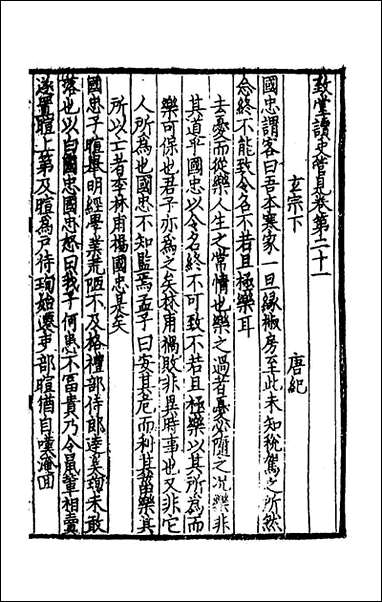 致堂讀史管見卷第二十一
玄宗下　唐紀
國忠謂客曰吾本寒家一旦緣椒房至此未知稅駕之所然
念終不能致令名不若且極樂耳
去憂而從樂人生之常情也樂之過者憂必隨之况樂非
其道乎國忠以令名終不可致不若且極樂以其所爲而
樂可保也君子亦爲之矣林甫禍敗非異時事也又非它
人所爲也國忠不知監焉孟子曰安其危而利其菑樂其
所以亡者李林甫楊國忠是矣
國忠子暄舉明經學業荒陋不及格禮部侍郎達奚珣未敢
落也以白國忠國忠怒曰我子何患不冨貴乃令鼠輩相賣
遂置暄上第及暄爲戸侍珣始遷吏部暄猶自嘆淹回